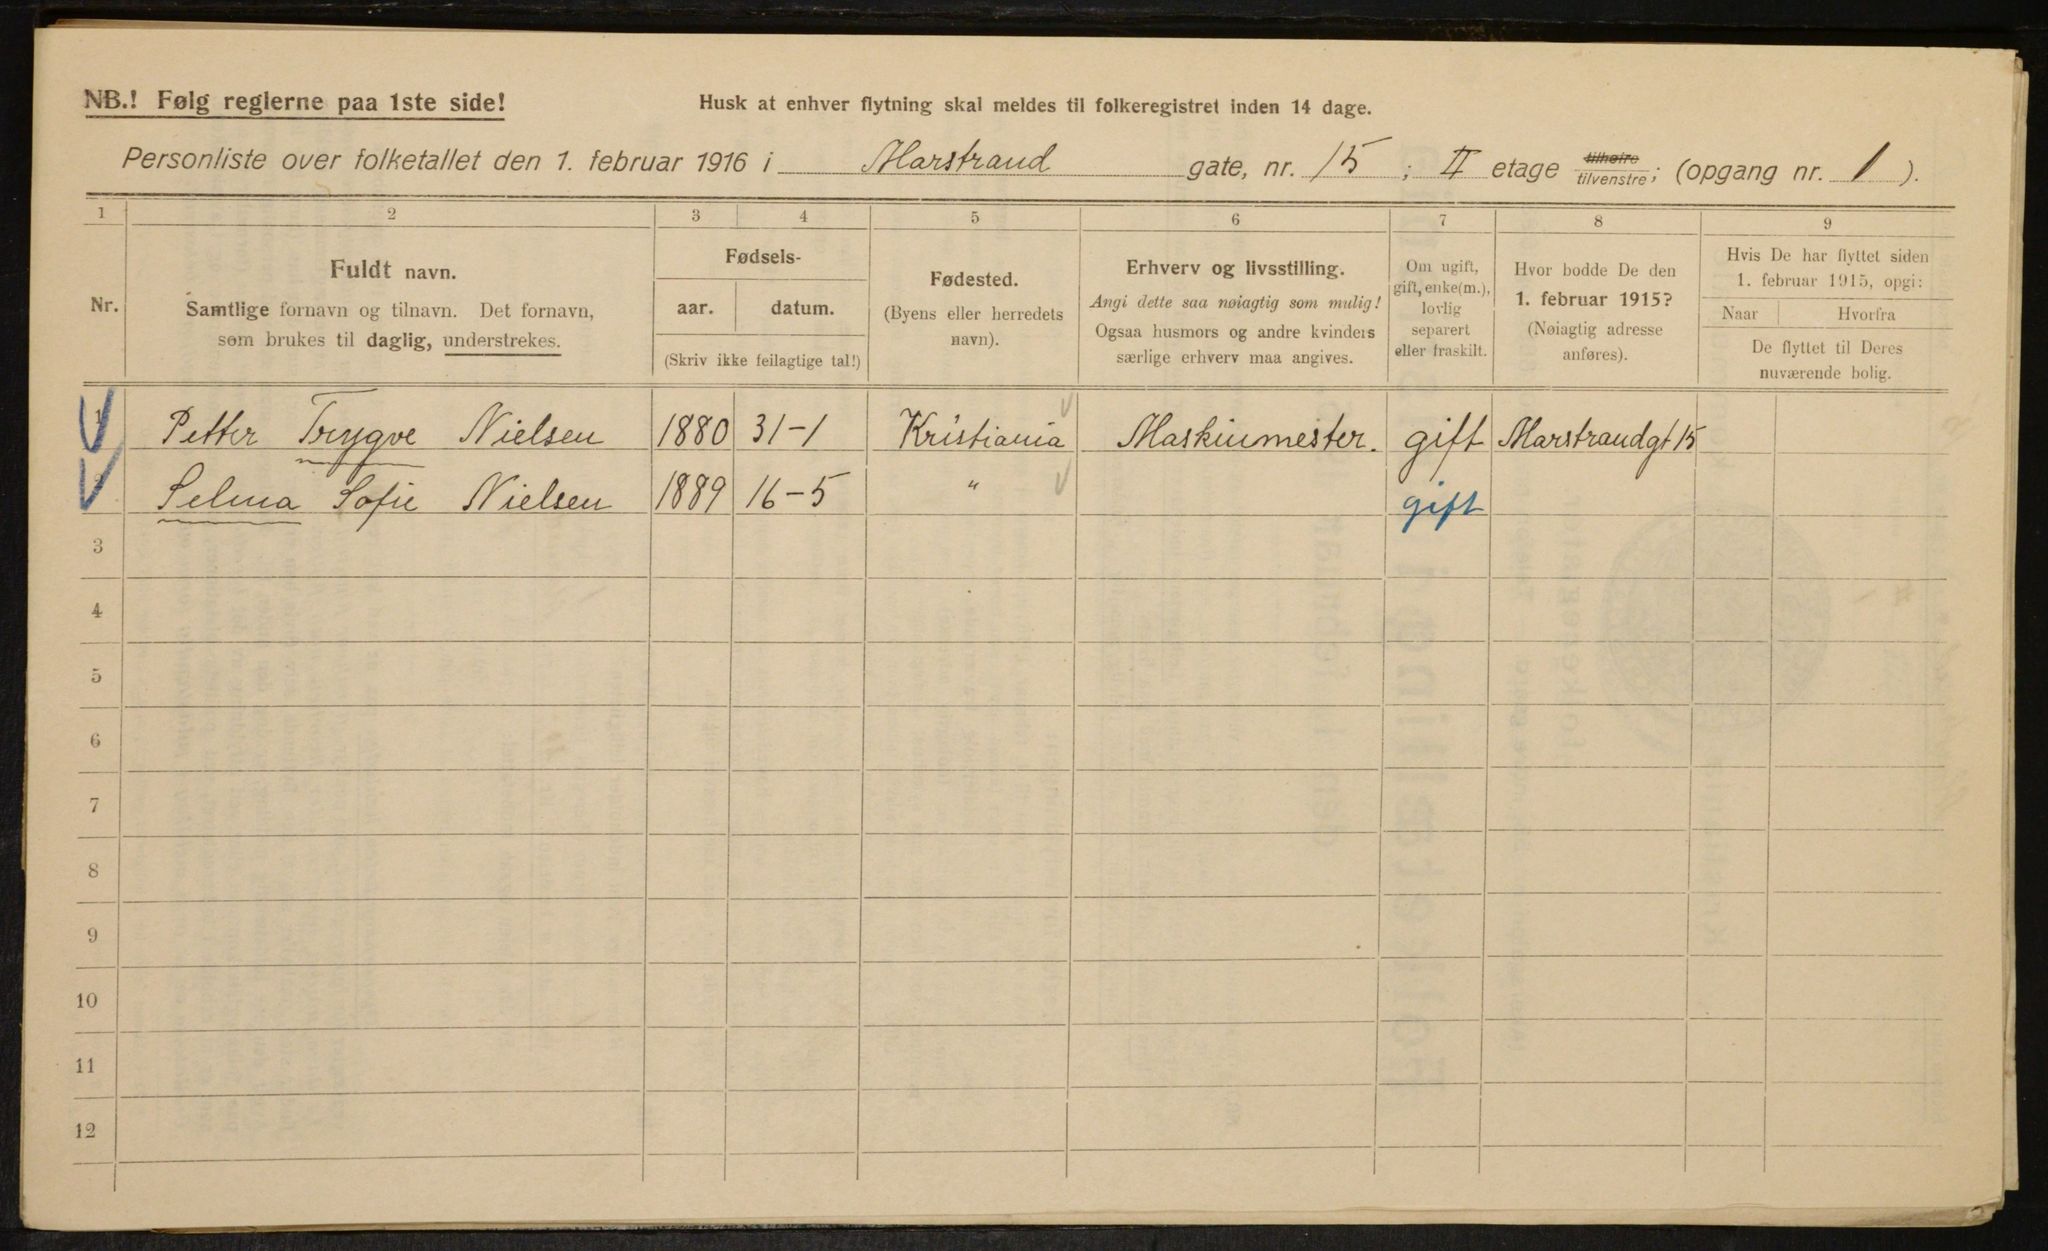 NB.! Følg reglerne paa 1ste side!
Husk at enhver flytning skal meldes til folkeregistret inden 14 dage.
Personliste over folketallet den 1. februar 1916 i Marstrand gate, nr. 15 ; II etage tilhøire tilvenstre; (opgang nr. 1 ).
1 2 3 4 5 6 7 8 9
Nr.
Fuldt navn.
Samtlige fornavn og tilnavn. Det fornavn,
som brukes til daglig, understrekes.
Fødsels-
aar. datum.
(Skriv ikke feilagtige tal!)
Fødested.
(Byens eller herredets
navn).
Erhverv og livsstilling.
Angi dette saa nøiagtig som mulig!
Ogsaa husmors og andre kvinders
særlige erhverv maa angives.
Om ugift,
gift, enke(m.),
lovlig
separert
eller fraskilt.
Hvor bodde De den
1. februar 1915?
(Nøiagtig adresse
anføres).
Hvis De har flyttet siden
1. februar 1915, opgi:
Naar Hvorfra
De flyttet til Deres
nuværende bolig.
1 Petter Trygve Nielsen 1880 31-1 Kristiania Maskinmester. gift Marstrandgt 15
2 Selma Sofie Nielsen 1889 16-5 " gift
3
4
5
6
7
8
9
10
11
12